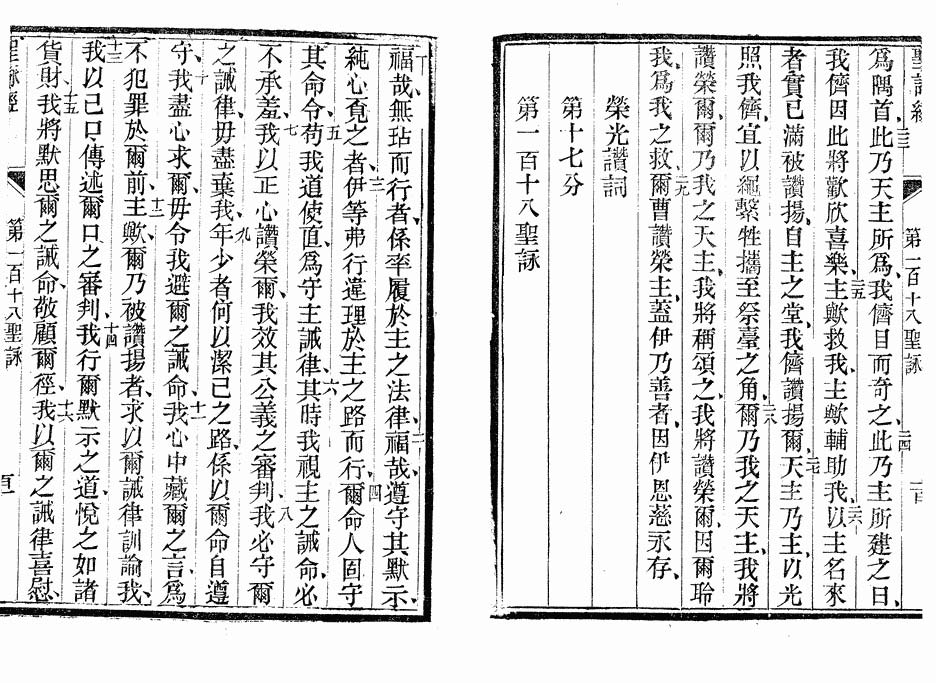 聖詠經
第一百十八聖詠
一百
爲隅首、此乃天主所爲、我儕目而奇之、二四此乃主所建之日、
我儕因此將歡欣喜樂、二五主歟救我、主歟輔助我、二六以主名來
者實已滿被讚揚、自主之堂、我儕讚揚爾、二七天主乃主、以光
照我儕、宜以繩繫牲攜至祭臺之角、二八爾乃我之天主、我將
讚榮爾、爾乃我之天主、我將稱頌之、我將讚榮爾、因爾聆
我、爲我之救、二九爾曹讚榮主、蓋伊乃善者、因伊恩慈永存、
榮光讚詞
第十七分
第一百十八聖詠
一福哉、無玷而行者、係率履於主之法律、二福哉、遵守其默示、
純心覓之者、三伊等弗行違理於主之路而行、四爾命人固守
其命令、五苟我道使直、爲守主誡律、六其時我視主之誡命、必
不承羞、七我以正心讚榮爾、我效其公義之審判、八我必守爾
之誡律、毋盡棄我、九年少者何以潔己之路、係以爾命自遵
守、十我盡心求爾、毋令我避爾之誡命、十一我心中藏爾之言、爲
不犯罪於爾前、十二主歟、爾乃被讚揚者、求以爾誡律訓諭我、
十三我以己口傳述爾口之審判、十四我行爾默示之道、悅之如諸
貨財、十五我將默思爾之誡命、敬顧爾徑、十六我以爾之誡律喜慰、
聖詠經
第一百十八聖詠
百一